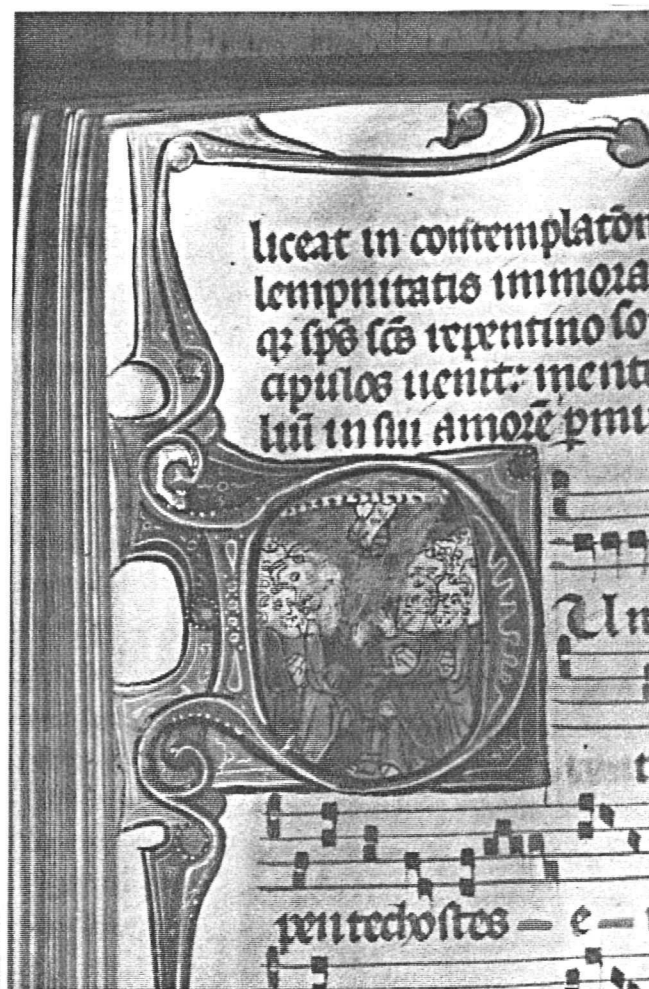 liceat in contemplatōn
lempnitatis immora
qꝫ sp̄s sc̄s repentino so
cipulos uenit: menti
liū in sui amorē ꝑmu
Um
t
pentechostes — e —